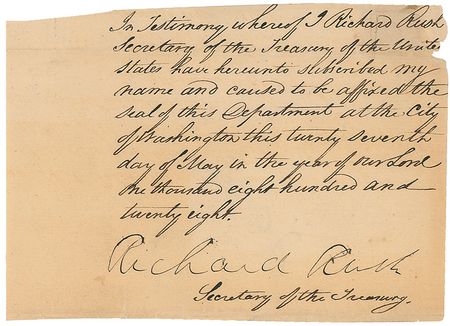 In Testimony, whereof I Richard Rush
Secretary of the Treasury of the Unite
States have hereunto subscribed my
name and caused to be affixed the
seal of this Department at the City
of Washington this twenty seventh
day of May in the year of our Lord
One thousand eight hundred and
twenty eight.
Richard Rush
Secretary of the Treasury.